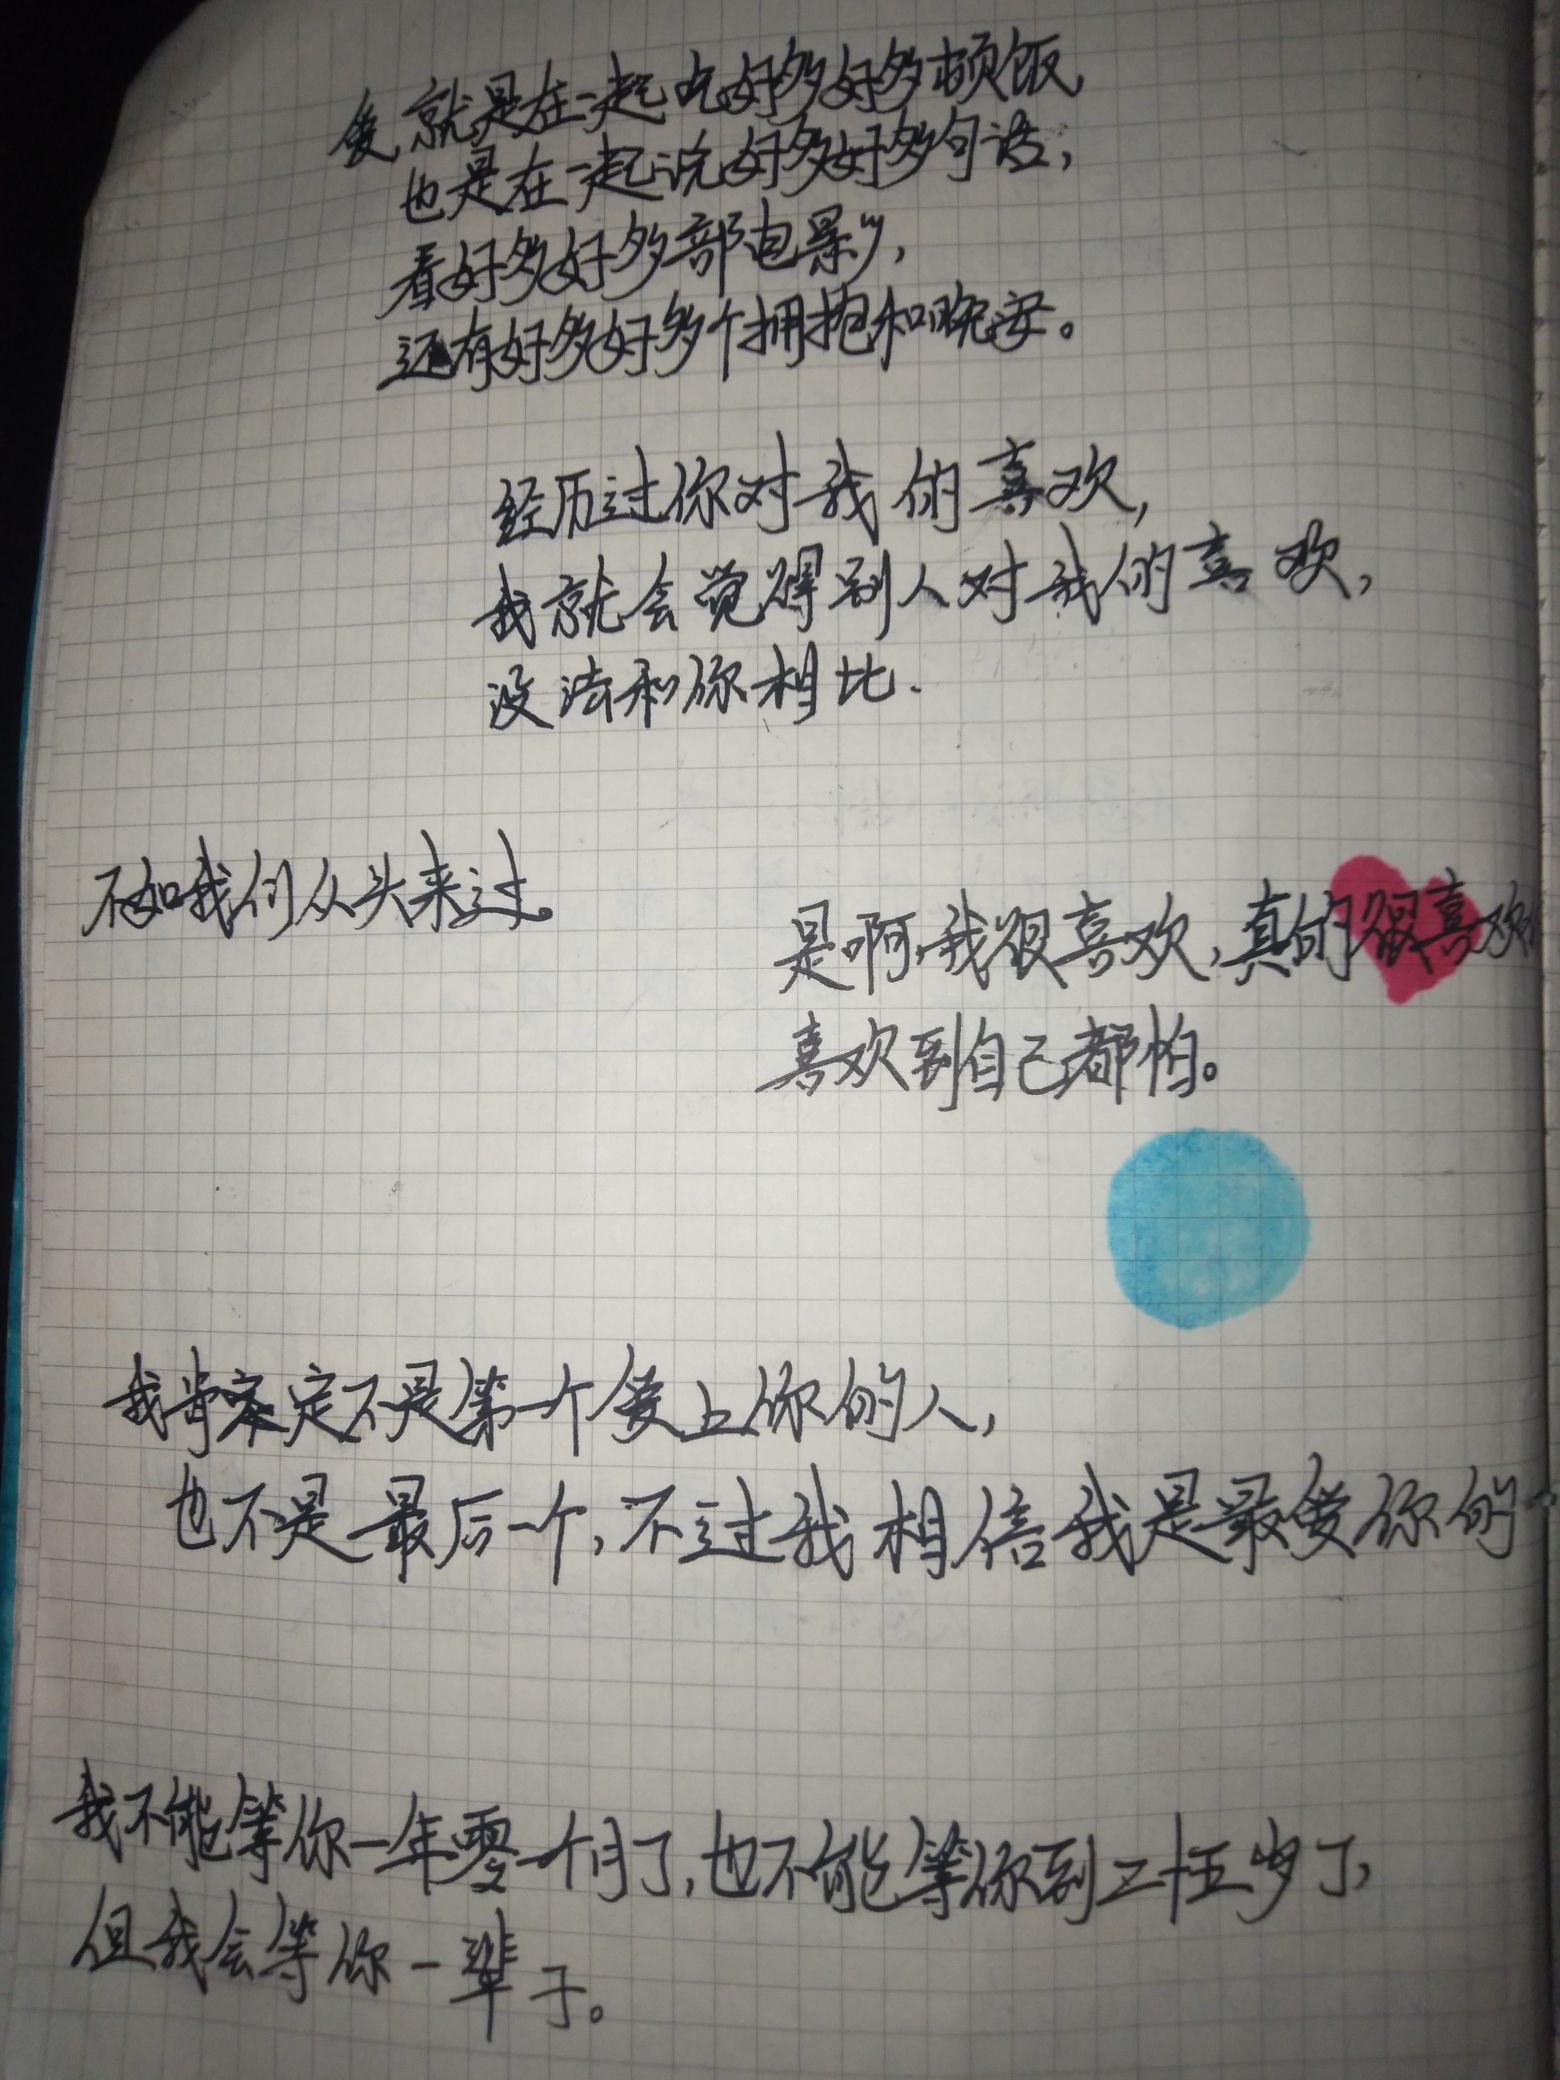 爱就是在一起吃好多好多顿饭
也是在一起说好多好多句话，
看好多好多部电影，
还有好多好多个拥抱和晚安。
经历过你对我的喜欢，
我就会觉得别人对我的喜欢，
没法和你相比.
不如我们从头来过。
是啊，我很喜欢，真的很喜欢
喜欢到自己都怕。
我肯定不是第一个爱上你的人，
也不是最后一个，不过我相信我是最爱你的
我不能等你一年零一个月了，也不能等你到二十五岁了，
但我会等你一辈子。